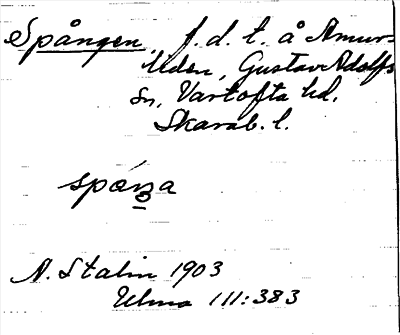 Spången, f.d. t. å Amurs-
Uden, Gustav Adolfs
sn, Vartofta hd.
Skarab. l.
spåŋa
A. Stalin 1903
Ulma 111:383